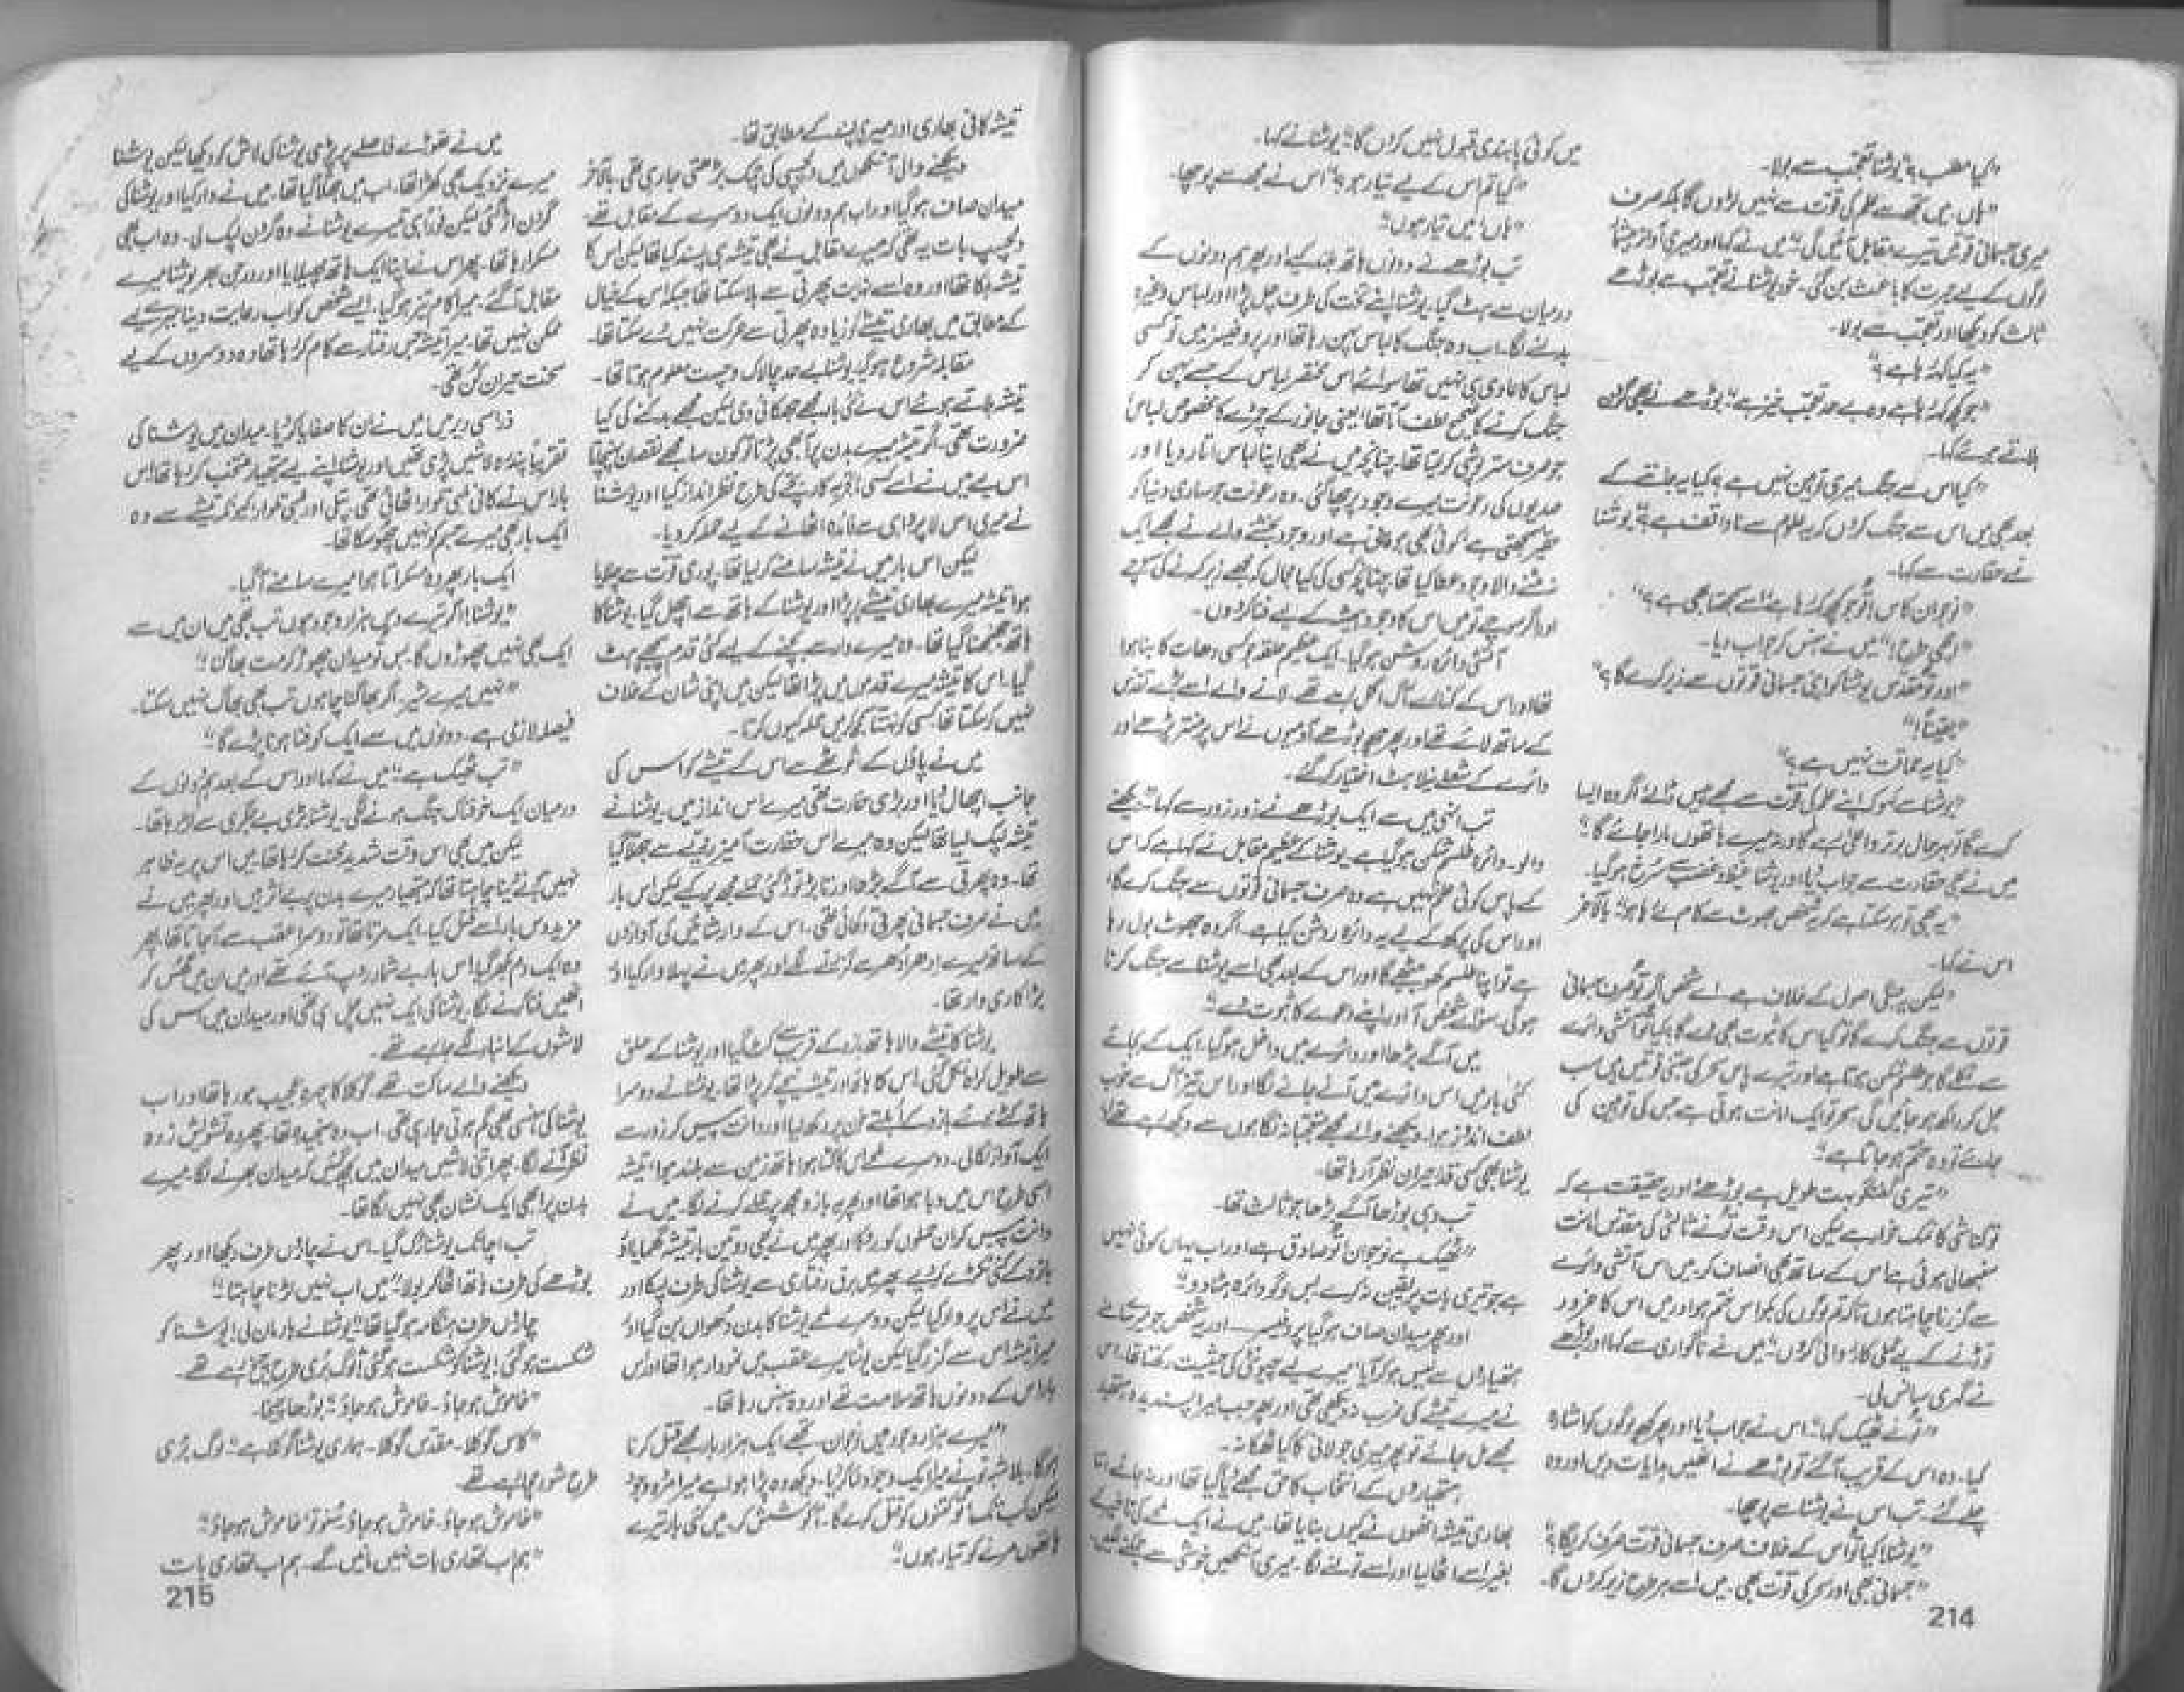 "کیا مطلب؟" یوشنا تعجب سے بولا۔
"ہاں۔ میں تجھ سے علم کی قوت سے نہیں لڑوں گا بلکہ صرف
میری جسمانی قوتیں تیرے مقابل آئیں گی۔" میں نے کہا اور میری آواز
لوگوں کے لیے حیرت کا باعث بن گئی۔ خود یوشنا نے تعجب سے بوڑھے
ثالث کو دیکھا اور تعجب سے بولا۔
"یہ کیا کہہ رہا ہے؟"
"جو کچھ کہہ رہا ہے وہ بے حد تعجب خیز ہے۔" بوڑھے نے بھی گردن
ہلاتے ہوئے کہا۔
"کیا اس سے جنگ میری توہین نہیں ہے؟ کیا یہ جاننے کے
بعد بھی میں اس سے جنگ کروں کہ یہ علوم سے ناواقف ہے؟" یوشنا
نے حقارت سے کہا۔
"نوجوان کاس! تُو جو کچھ کہہ رہا ہے اسے سمجھتا بھی ہے؟"
"اچھی طرح!" میں نے ہنس کر جواب دیا۔
"اور تُو مقدس یوشنا کو اپنی جسمانی قوتوں سے زیر کرے گا؟"
"یقیناً!"
"کیا یہ حماقت نہیں ہے؟"
"یوشنا سے کہو کہ اپنے علم کی قوت سے مجھے پیس ڈالے اگر وہ ایسا
کرے گا تو بہرحال برتر و اعلیٰ رہے گا ورنہ میرے ہاتھوں مارا جائے گا۔"
میں نے بھی حقارت سے جواب دیا اور یوشنا غیظ و غضب سے سُرخ ہو گیا۔
"یہ بھی تو ہو سکتا ہے کہ یہ شخص جھوٹ سے کام لے رہا ہو۔" بالآخر
اس نے کہا۔
"لیکن یہ جنگی اصول کے خلاف ہے۔ اے شخص اگر تُو صرف جسمانی
قوتوں سے جنگ کرے گا تو کیا اس کا ثبوت بھی دے گا؟ کیا تو آتشی دائرے
سے نکلے گا جو طلسم شکن ہوتا ہے اور تیرے پاس سحر کی جتنی قوتیں ہیں سب
جل کر راکھ ہو جائیں گی۔ سحر تو ایک امانت ہوتی ہے جس کی توہین کی
جائے تو وہ ختم ہو جاتا ہے۔"
"تیری گفتگو بہت طویل ہے بوڑھے اور یہ حقیقت ہے کہ
تو کناشی کا نمک خوار ہے لیکن اس وقت تُو نے ثالثی کی مقدس امانت
سنبھالی ہوئی ہے اس کے ساتھ بھی انصاف کر۔ میں اس آتشی دائرے
سے گزرنا چاہتا ہوں تاکہ تم لوگوں کی بکواس ختم ہو اور میں اس کا غرور
توڑنے کے لیے عملی کارروائی کروں۔" میں نے ناگواری سے کہا اور بوڑھے
نے گہری سانس لی۔
"تُو نے ٹھیک کہا۔" اس نے جواب دیا اور پھر کچھ لوگوں کو اشارہ
کیا۔ وہ اس کے قریب آگئے تو بوڑھے نے انھیں ہدایات دیں اور وہ
چلے گئے۔ تب اس نے یوشنا سے پوچھا۔
"یوشنا! کیا تو اس کے خلاف صرف جسمانی قوت صرف کریگا؟"
"جسمانی بھی اور سحر کی قوت بھی۔ میں اسے ہر طرح زیر کروں گا۔
میں کوئی پابندی قبول نہیں کروں گا۔" یوشنا نے کہا۔
"کیا تم اس کے لیے تیار ہو؟" اس نے مجھ سے پوچھا۔
"ہاں! میں تیار ہوں۔"
تب بوڑھے نے دونوں ہاتھ بلند کیے اور پھر ہم دونوں کے
درمیان سے ہٹ گیا۔ یوشنا اپنے تخت کی طرف چل پڑا اور لباس وغیرہ
بدلنے لگا۔ اب وہ جنگ کا لباس پہن رہا تھا اور پروفیسر میں تو کسی
لباس کا عادی ہی نہیں تھا سوائے اس مختصر لباس کے جسے پہن کر
جنگ کرنے کا صحیح لطف آتا تھا یعنی جانور کے چمڑے کا مخصوص لباس
جو صرف ستر پوشی کر لیتا تھا۔ چنانچہ میں نے بھی اپنا لباس اتار دیا اور
صدیوں کی رعونت میرے وجود پر چھا گئی۔ وہ رعونت جو ساری دنیا کو
حقیر سمجھتی ہے کوئی بھی ہو فانی ہے اور وجود بخشنے والے نے مجھے ایک
نہ مٹنے والا وجود عطا کیا تھا۔ چنانچہ کسی کی کیا مجال کہ مجھے زیر کرنے کی سوچے
اور اگر سوچے تو میں اس کا وجود ہمیشہ کے لیے فنا کر دوں۔
آتشی دائرہ روشن ہو گیا۔ ایک عظیم حلقہ جو کسی دھات کا بنا ہوا
تھا اور اس کے کنارے آگ اگل رہے تھے۔ لانے والے اسے بڑے تقدس
کے ساتھ لائے تھے اور پھر چھ بوڑھے آدمیوں نے اس پر منتر پڑھے اور
دائرے کے شعلے نیلاہٹ اختیار کر گئے۔
تب انہی میں سے ایک بوڑھے نے زور زور سے کہا۔ "دیکھنے
والو۔ دائرہ طلسم شکن ہو گیا ہے۔ یوشنا کے عظیم مقابل نے کہا ہے کہ اس
کے پاس کوئی علم نہیں ہے وہ صرف جسمانی قوتوں سے جنگ کرے گا
اور اس کی پرکھ کے لیے یہ دائرہ روشن کیا ہے۔ اگر وہ جھوٹ بول رہا
ہے تو اپنا طلسم کھو بیٹھے گا اور اس کے بعد بھی اسے یوشنا سے جنگ کرنا
ہوگی۔ سو اے شخص آ اور اپنے دعوے کا ثبوت دے۔"
میں آگے بڑھا اور دائرے میں داخل ہو گیا۔ ایک کے بجائے
کئی بار میں اس دائرے میں آنے جانے لگا اور اس تیز آگ سے خوب
لطف اندوز ہوا۔ دیکھنے والے مجھے متعجبانہ نگاہوں سے دیکھ رہے تھے
یوشنا بھی کسی قدر حیران نظر آ رہا تھا۔
تب وہی بوڑھا آگے بڑھا جو ثالث تھا۔
"ٹھیک ہے نوجوان! تُو صادق ہے اور اب یہاں کوئی نہیں
ہے جو تیری بات پر یقین نہ کرے۔ بس لوگو دائرہ ہٹا دو۔"
اور پھر میدان صاف ہو گیا پروفیسر — اور یہ شخص جو
ہتھیاروں سے لیس ہو کر آیا میرے لیے چیونٹی کی حیثیت رکھتا تھا۔ اس
نے میرے تیشے کی ضرب نہ دیکھی تھی اور پھر جب میرا پسندیدہ ہتھیار
مجھے مل جائے تو پھر میری جولانی کا کیا ٹھکانہ۔
ہتھیاروں کے انتخاب کا حق مجھے دیا گیا تھا اور نہ جانے اتنا
بھاری تیشہ انھوں نے کیوں بنایا تھا۔ میں نے ایک لمحے کی تاخیر کے
بغیر اسے اٹھا لیا اور اسے تولنے لگا۔ میری آنکھیں خوشی سے چمکنے لگیں۔
214
تیشہ کافی بھاری اور میری پسند کے مطابق تھا۔
دیکھنے والی آنکھوں میں دلچسپی کی چمک بڑھتی جا رہی تھی۔ بالآخر
میدان صاف ہو گیا اور اب ہم دونوں ایک دوسرے کے مقابل تھے۔
دلچسپ بات یہ تھی کہ میرے مقابل نے بھی تیشہ ہی پسند کیا تھا لیکن اس کا
تیشہ ہلکا تھا اور وہ اسے خوب پھرتی سے ہلا سکتا تھا جبکہ اس کے خیال
کے مطابق میں بھاری تیشے کو زیادہ پھرتی سے حرکت نہیں دے سکتا تھا۔
مقابلہ شروع ہو گیا۔ یوشنا بے حد چالاک و چست معلوم ہوتا تھا۔
تیشہ ہلاتے ہوئے اس نے کئی بار مجھے جھکائی دی لیکن مجھے بدکنے کی کیا
ضرورت تھی۔ اگر تیشہ میرے بدن پر آ بھی پڑتا تو کون سا مجھے نقصان پہنچتا
اس لیے میں نے اسے کسی کی طرح نظر انداز کیا اور یوشنا
نے میری اس لاپرواہی سے فائدہ اٹھانے کے لیے حملہ کر دیا۔
لیکن اس بار میں نے تیشہ سامنے کر لیا تھا۔ پوری قوت سے
ہوا تیشہ میرے بھاری تیشے پر پڑا اور یوشنا کے ہاتھ سے اچھل گیا۔ یوشنا کا
ہاتھ جھنجھنا گیا تھا۔ وہ میرے وار سے بچنے کے لیے کئی قدم پیچھے ہٹ
گیا۔ اس کا تیشہ میرے قدموں میں پڑا تھا لیکن میں اپنی شان کے خلاف
نہیں کر سکتا تھا کسی کو نہتا سمجھ کر میں حملہ کیوں کرتا۔
میں نے پاؤں کے انگوٹھے سے اس کے تیشے کو اس کی
جانب اچھال دیا اور بڑی حقارت تھی میرے اس انداز میں۔ یوشنا نے
تیشہ لپک لیا تھا لیکن وہ میرے اس حقارت آمیز رویے سے جھلا گیا
تھا۔ وہ پھرتی سے آگے بڑھا اور تابڑ توڑ کئی حملے مجھ پر کیے لیکن اس بار
میں نے صرف جسمانی پھرتی دکھائی تھی۔ اس کے وار شائیں کی آوازوں
کے ساتھ میرے ادھر اُدھر سے گزرنے لگے اور پھر میں نے پہلا وار کیا اور
بڑا کاری وار تھا۔
یوشنا کا تیشے والا ہاتھ بازو کے قریب سے کٹ گیا اور یوشنا کے حلق
سے طویل کراہ نکل گئی۔ اس کا ہاتھ اور تیشہ نیچے گر پڑا تھا۔ یوشنا نے دوسرا
ہاتھ کٹے ہوئے بازو کے اُبلتے خون پر رکھ لیا اور دانت پیس کر زور سے
ایک آواز نکالی۔ دوسرے لمحے اس کا کٹا ہوا ہاتھ زمین سے بلند ہوا تیشہ
اسی طرح اس میں دبا ہوا تھا اور پھر یہ بازو مجھ پر حملے کرنے لگا۔ میں نے
دانت پیس کر ان حملوں کو روکا اور پھر میں نے بھی دو تین بار تیشہ گھمایا اور
بازو کے کئی ٹکڑے کر دیے۔ پھر میں برق رفتاری سے یوشنا کی طرف لپکا اور
میں نے اس پر وار کیا لیکن دوسرے لمحے یوشنا کا بدن دُھواں بن گیا اور
میرا تیشہ اس سے گزر گیا لیکن یوشنا میرے عقب میں نمودار ہوا تھا اور اس
بار اس کے دونوں ہاتھ سلامت تھے اور وہ ہنس رہا تھا۔
"میرے ہزار وجود ہیں نوجوان! تجھے ایک ہزار بار مجھے قتل کرنا
ہوگا۔ بلاشبہ تو نے میرا ایک وجود فنا کر دیا۔ دیکھ وہ پڑا ہوا ہے میرا مردہ وجود
لیکن کب تک؟ تو کتنوں کو قتل کرے گا۔ آ کوشش کر۔ میں کئی بار تیرے
ہاتھوں مرنے کو تیار ہوں۔"
میں نے تھوڑے فاصلے پر پڑی یوشنا کی لاش کو دیکھا لیکن یوشنا
میرے نزدیک بھی کھڑا تھا۔ اب میں جھلا گیا تھا۔ میں نے وار کیا اور یوشنا کی
گردن اڑ گئی لیکن فوراً ہی تیسرے یوشنا نے وہ گردن لپک لی۔ وہ اب بھی
مسکرا رہا تھا۔ پھر اس نے اپنا ایک ہاتھ پھیلایا اور درجن بھر یوشنا میرے
مقابل آ گئے۔ میرا کام تیز ہو گیا۔ ایسے شخص کو اب رعایت دینا میرے لیے
ممکن نہیں تھا۔ میرا تیشہ جس رفتار سے کام کر رہا تھا وہ دوسروں کے لیے
سخت حیران کن تھی۔
ذرا سی دیر میں میں نے ان کا صفایا کر دیا۔ میدان میں یوشنا کی
تقریباً پندرہ لاشیں پڑی تھیں اور یوشنا اپنے لیے ہتھیار منتخب کر رہا تھا۔ اس
بار اس نے کافی لمبی تلوار اٹھائی تھی۔ پتلی اور لمبی تلوار کیونکہ تیشے سے وہ
ایک بار بھی میرے جسم کو نہیں چھو سکا تھا۔
ایک بار پھر وہ مسکراتا ہوا میرے سامنے آ گیا۔
"یوشنا! اگر تیرے دس ہزار وجود ہوں تب بھی میں ان میں سے
ایک بھی نہیں چھوڑوں گا۔ بس تو میدان چھوڑ کر مت بھاگنا۔"
"نہیں میرے شیر۔ اگر بھاگنا چاہوں تب بھی بھاگ نہیں سکتا۔
فیصلہ لازمی ہے۔ دونوں میں سے ایک کو فنا ہونا پڑے گا۔"
"تب ٹھیک ہے۔" میں نے کہا اور اس کے بعد ہم دونوں کے
درمیان ایک خوفناک جنگ ہونے لگی۔ یوشنا بڑی بے جگری سے لڑ رہا تھا۔
لیکن میں بھی اس وقت شدید محنت کر رہا تھا۔ میں اس پر یہ ظاہر
نہیں کرنے دینا چاہتا تھا کہ ہتھیار میرے بدن پر بے اثر ہیں اور پھر میں نے
مزید دس بار اسے قتل کیا۔ ایک مرتا تھا تو دوسرا عقب سے آ جاتا تھا۔ پھر
وہ ایک دم بکھر گیا۔ اس بار بے شمار روپ آئے تھے اور میں ان میں گھس کر
انھیں فنا کرنے لگا۔ یوشنا کی ایک نہیں چل رہی تھی اور میدان میں اس کی
لاشوں کے انبار لگے جا رہے تھے۔
دیکھنے والے ساکت تھے۔ گوکلا کا چہرہ عجیب ہو رہا تھا اور اب
یوشنا کی ہنسی بھی گم ہوتی جا رہی تھی۔ اب وہ سنجیدہ تھا۔ پھر وہ تشویش زدہ
نظر آنے لگا۔ پھر اتنی لاشیں میدان میں بچھ گئیں کہ میدان بھرنے لگا۔ میرے
بدن پر ابھی ایک نشان بھی نہیں لگا تھا۔
تب اچانک یوشنا رُک گیا۔ اس نے چاروں طرف دیکھا اور پھر
بوڑھے کی طرف ہاتھ اٹھا کر بولا۔ "میں اب نہیں لڑنا چاہتا۔"
چاروں طرف ہنگامہ ہو گیا تھا۔ "یوشنا نے ہار مان لی! یوشنا کو
شکست ہو گئی! یوشنا کو شکست ہو گئی!" لوگ بُری طرح چیخ رہے تھے۔
"خاموش ہو جاؤ۔ خاموش ہو جاؤ۔" بوڑھا چیخا۔
"کاس گوکلا۔ مقدس گوکلا۔ ہماری یوشنا گوکلا ہے۔" لوگ بُری
طرح شور مچا رہے تھے۔
"خاموش ہو جاؤ۔ خاموش ہو جاؤ۔ سُنو تو! خاموش ہو جاؤ۔"
"ہم اب تمھاری بات نہیں مانیں گے۔ ہم اب تمھاری بات
215